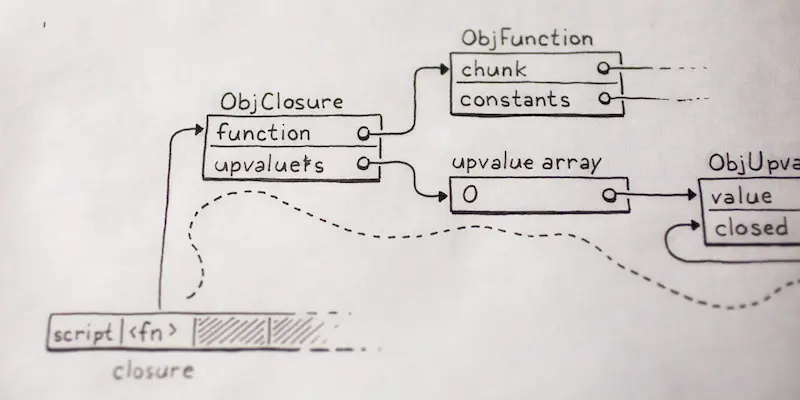 ObjFunction
chunk
constants
ObjClosure
function
upvalue array
0
ObjUpva
value
closed
script <fn>
closure